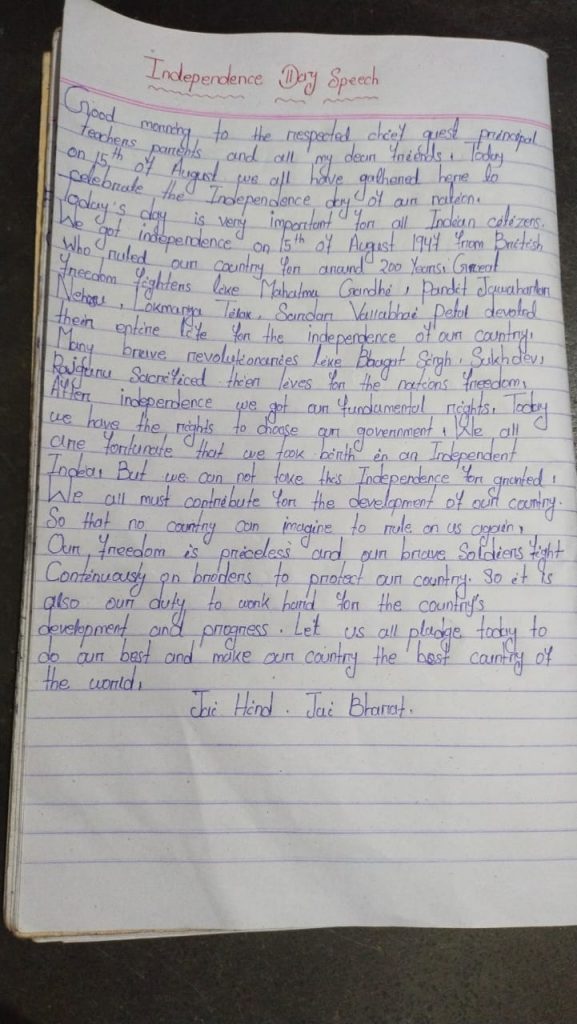 Independence Day Speech
Good morning to the respected chief guest principal
teachers parents and all my dear friends. Today
on 15th of August we all have gathered here to
celebrate the Independence day of our nation.
Today's day is very important for all Indian citizens.
We got independence on 15th of August 1947 from British
who ruled our country for around 200 years. Great
freedom fighters like Mahatma Gandhi, Pandit Jawaharlan
Nehru, Lokmanya Tilak, Sardar Vallabhai Patal devoted
their entire life for the independence of our country.
Many brave revolutionaries like Bhagat Singh, Sukhdev,
Rajguru Sacrificed their lives for the nations freedom.
After independence we got our fundamental rights. Today
we have the rights to choose our government. We all
are fortunate that we took birth in an Independent
India. But we can not take this Independence for granted.
We all must contribute for the development of our country.
So that no country can imagine to rule on us again.
Our freedom is priceless and our brave Soldiers fight
Continuously on broders to protect our country. So it is
also our duty to work hard for the country's
development and progress. Let us all pladge today to
do our best and make our country the best country of
the world.
Jai Hind. Jai Bharat.